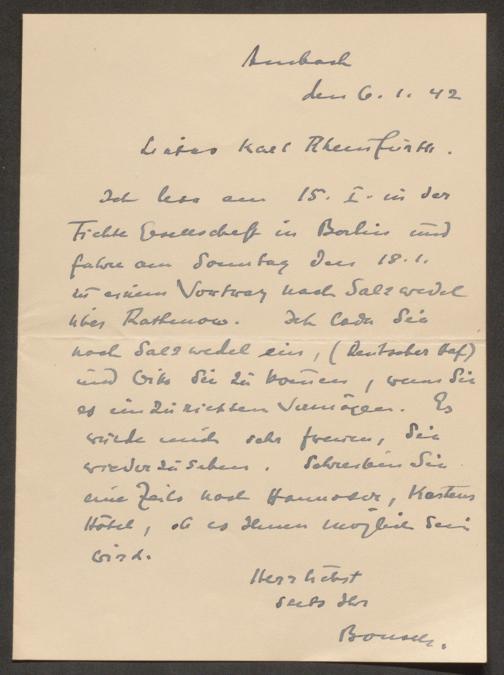 Ambach
den 6. 1. 42
Liebes Karl Rheinfurth.
Ich lese am 15. I. in der
Fichte Gesellschaft in Berlin und
fahre am Sonntag den 18. 1.
zu einem Vortrag nach Salzwedel
über Rathenow. Ich lade Sie
nach Salzwedel ein, (Deutscher Hof)
und bitte Sie zu kommen, wenn Sie
es einzurichten vermögen. Es
würde mich sehr freuen, Sie
wiederzusehen. Schreiben Sie
eine Zeile nach Hannover, Kastens
Hôtel, ob es Ihnen möglich sein
wird.
Herzlichst
stets Ihr